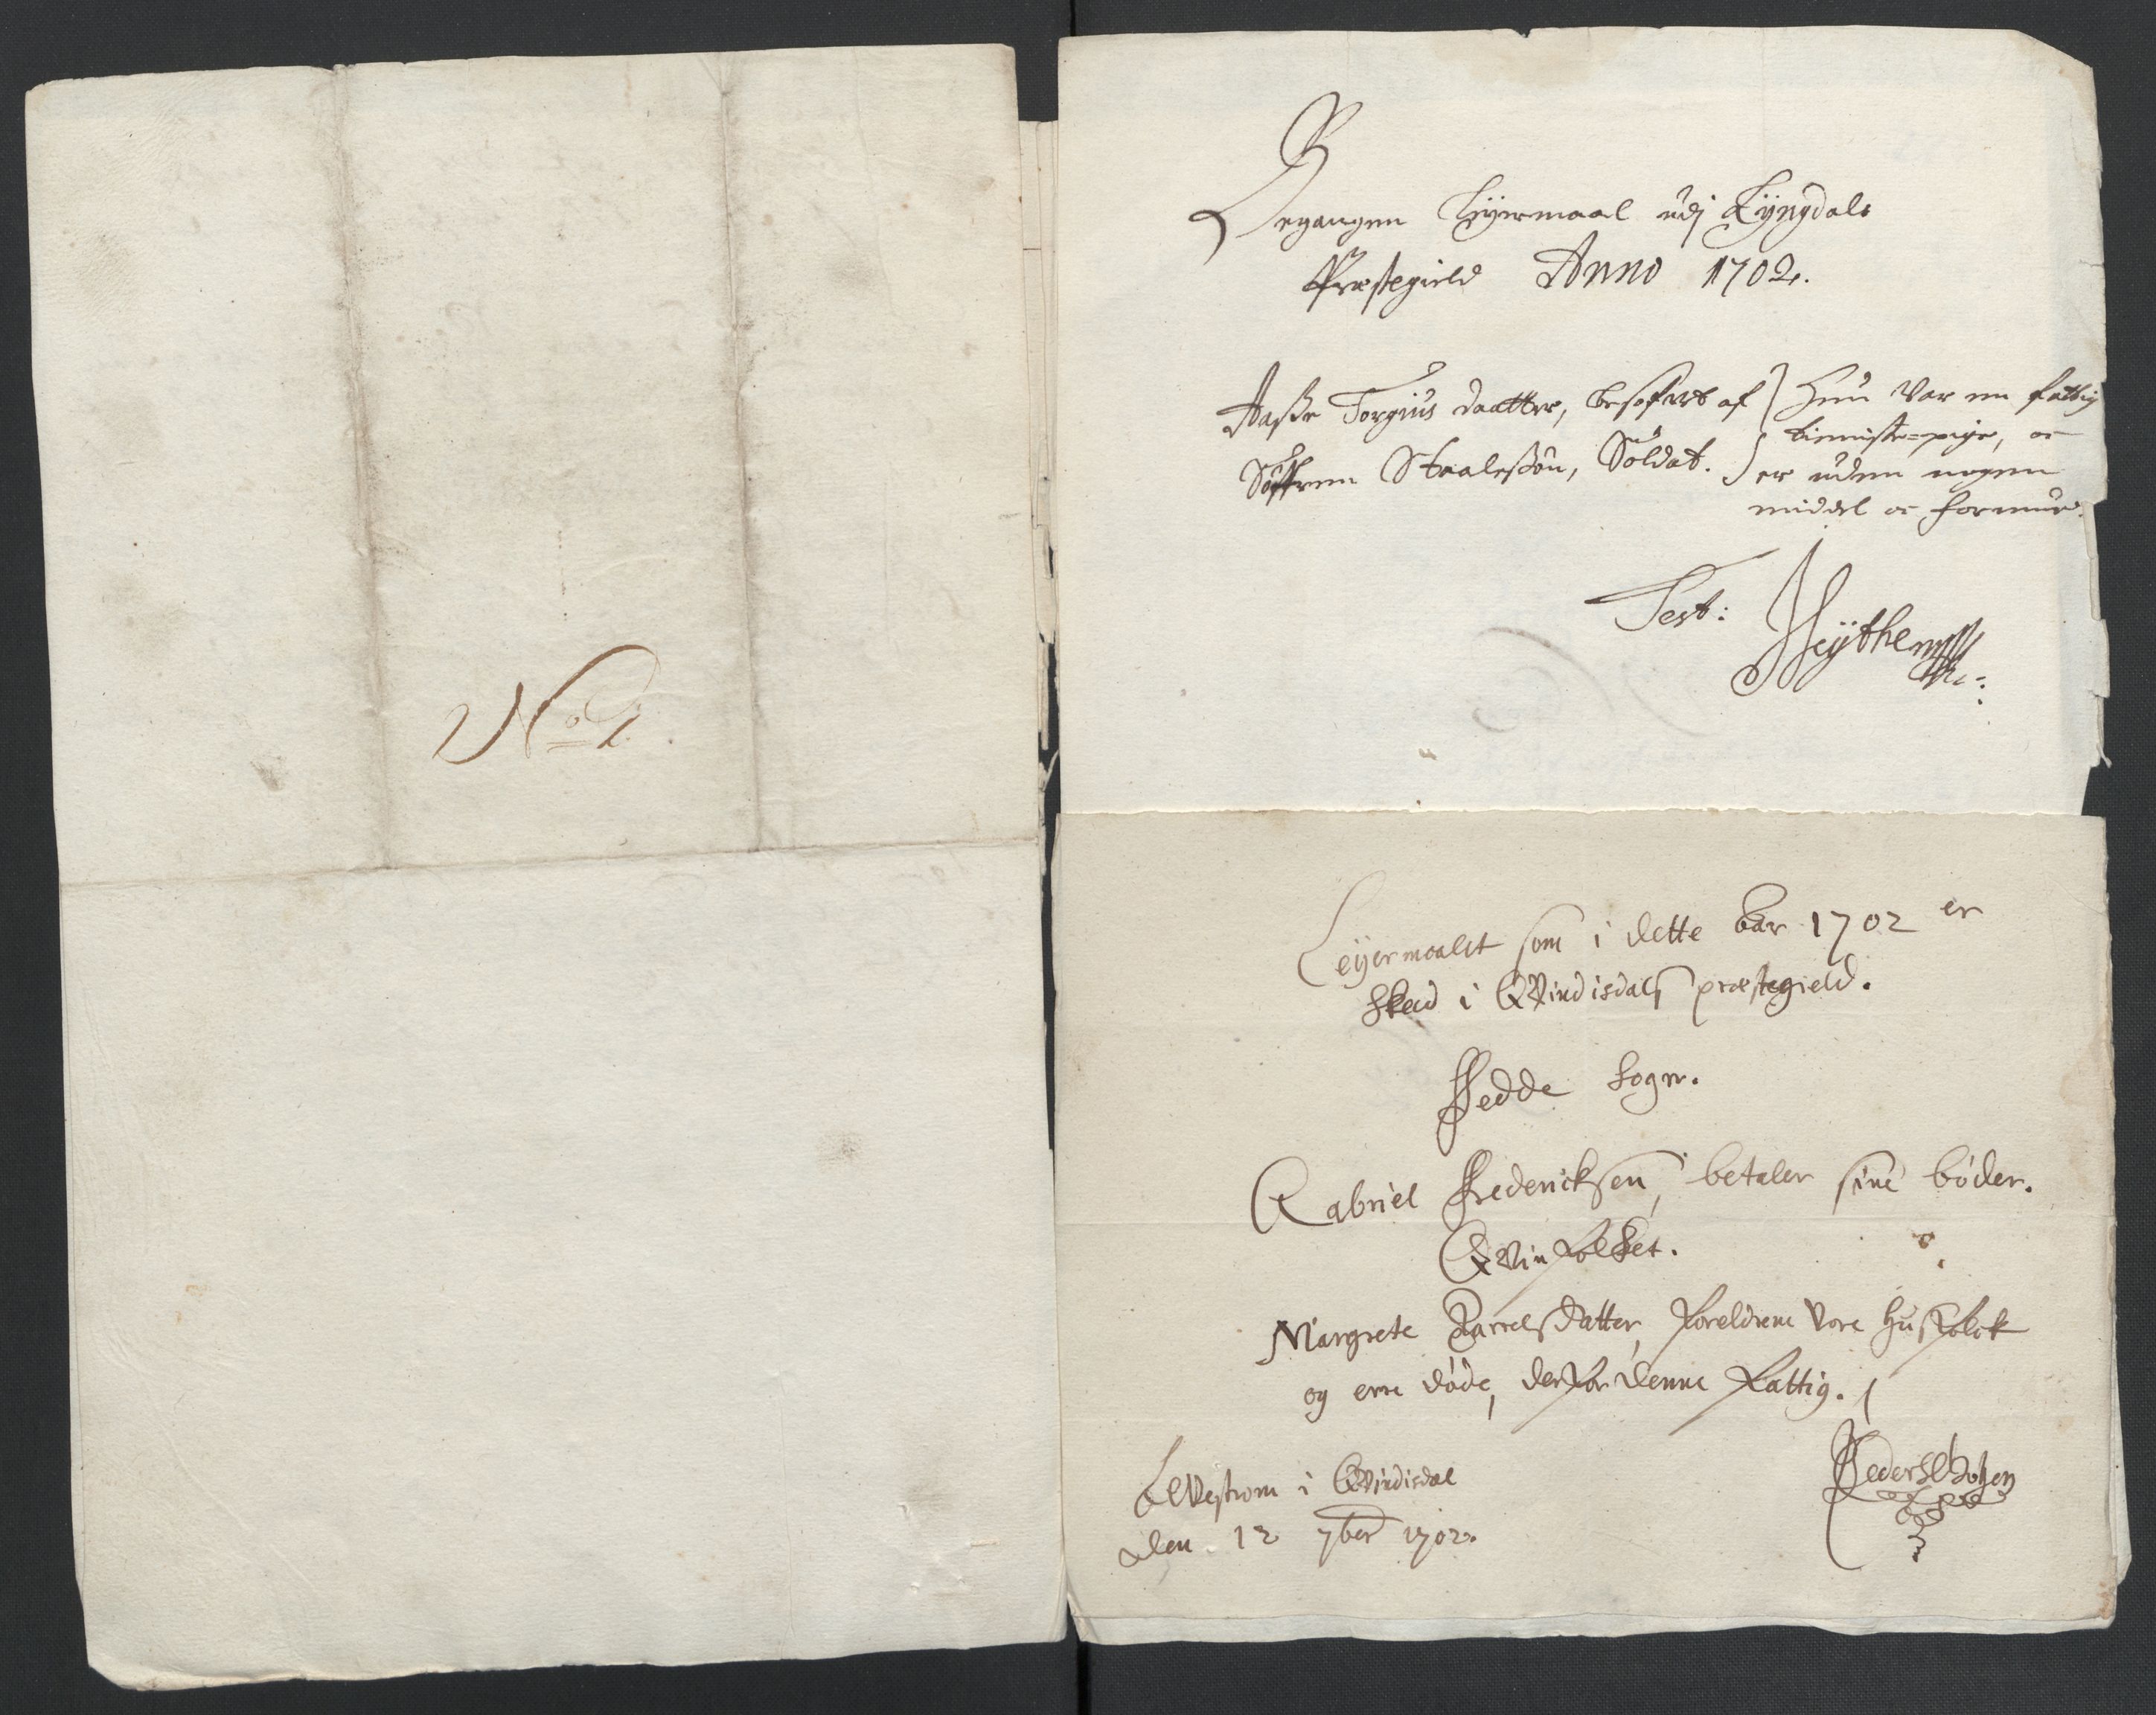 No 2.
Begangen Leyermaal udj Lyngdals
Præstegield Anno 1702.
Aaße Torgius daatter, besofvet af
Søffren Staalesßøn, Soldat.
Hun var en fattig
tienniste=pige, oc
er uden nogen
middel oc formue.
Test:
Leyermaalet som i dette aar 1702 er
skeed i Qvindisdals præstegield.
Fedde Sogn.
Gabriel Frederichsen, betaler sine bøder.
Qvinfolket.
Margrete Tarrelsdatter, foreldrene vore husfolck
og ere døde, derfor denne fattig.
i Qvindisdal
den 12 7ber 1702.